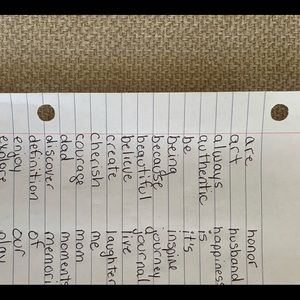 are honor
act husband
always happiness
authentic is
be it's
being inspire
because journey
beautiful journal
believe live
create laughter
cherish me
courage mom
dad moments
discover memori
definition of
enjoy our
explore play